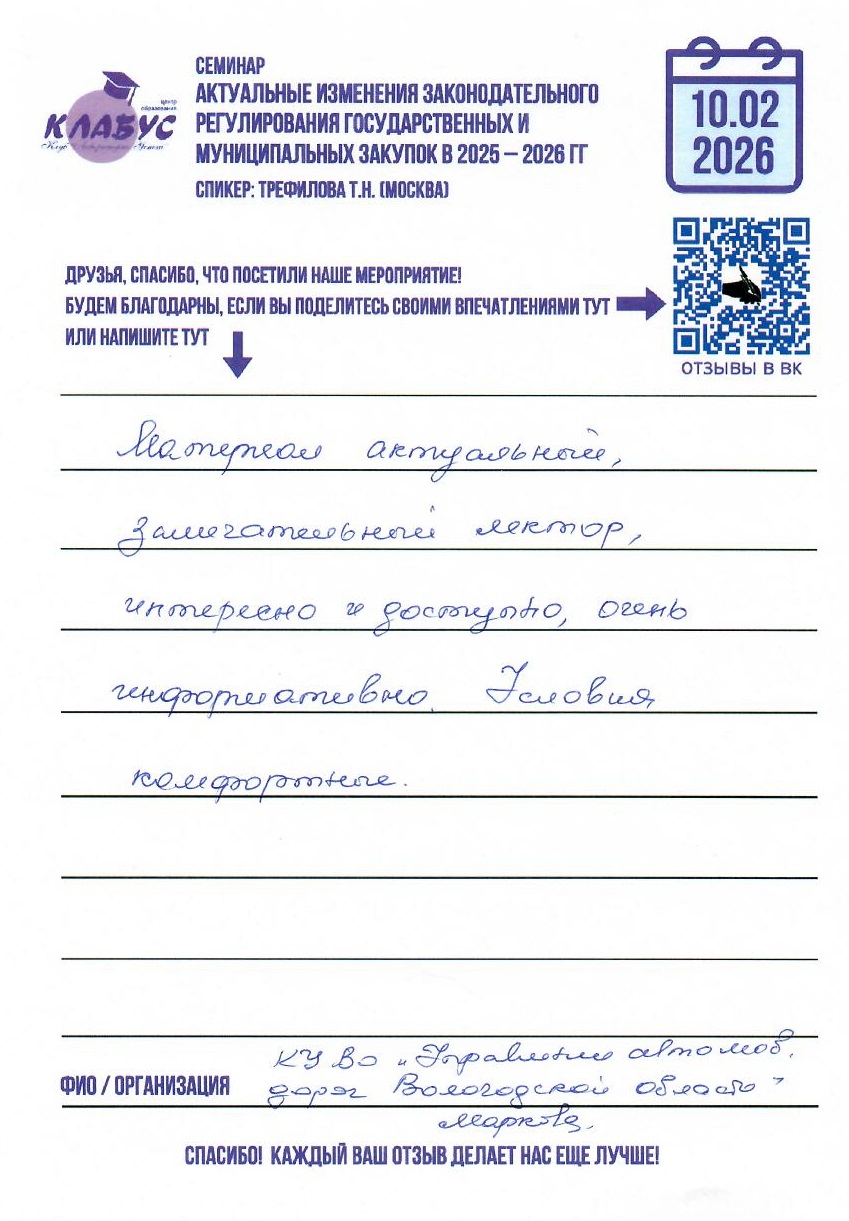 СЕМИНАР
АКТУАЛЬНЫЕ ИЗМЕНЕНИЯ ЗАКОНОДАТЕЛЬНОГО
РЕГУЛИРОВАНИЯ ГОСУДАРСТВЕННЫХ И
МУНИЦИПАЛЬНЫХ ЗАКУПОК В 2025 – 2026 ГГ
СПИКЕР: ТРЕФИЛОВА Т.Н. (МОСКВА)
центр
образования
КЛАБУС
10.02
2026
ДРУЗЬЯ, СПАСИБО, ЧТО ПОСЕТИЛИ НАШЕ МЕРОПРИЯТИЕ!
БУДЕМ БЛАГОДАРНЫ, ЕСЛИ ВЫ ПОДЕЛИТЕСЬ СВОИМИ ВПЕЧАТЛЕНИЯМИ ТУТ
ИЛИ НАПИШИТЕ ТУТ
ОТЗЫВЫ В ВК
Материал актуальный,
замечательный лектор,
интересно и доступно, очень
информативно. Условия
комфортные.
КУ ВО "Управление автомоб.
ФИО / ОРГАНИЗАЦИЯ дорог Вологодской области"
Маркова.
СПАСИБО! КАЖДЫЙ ВАШ ОТЗЫВ ДЕЛАЕТ НАС ЕЩЕ ЛУЧШЕ!